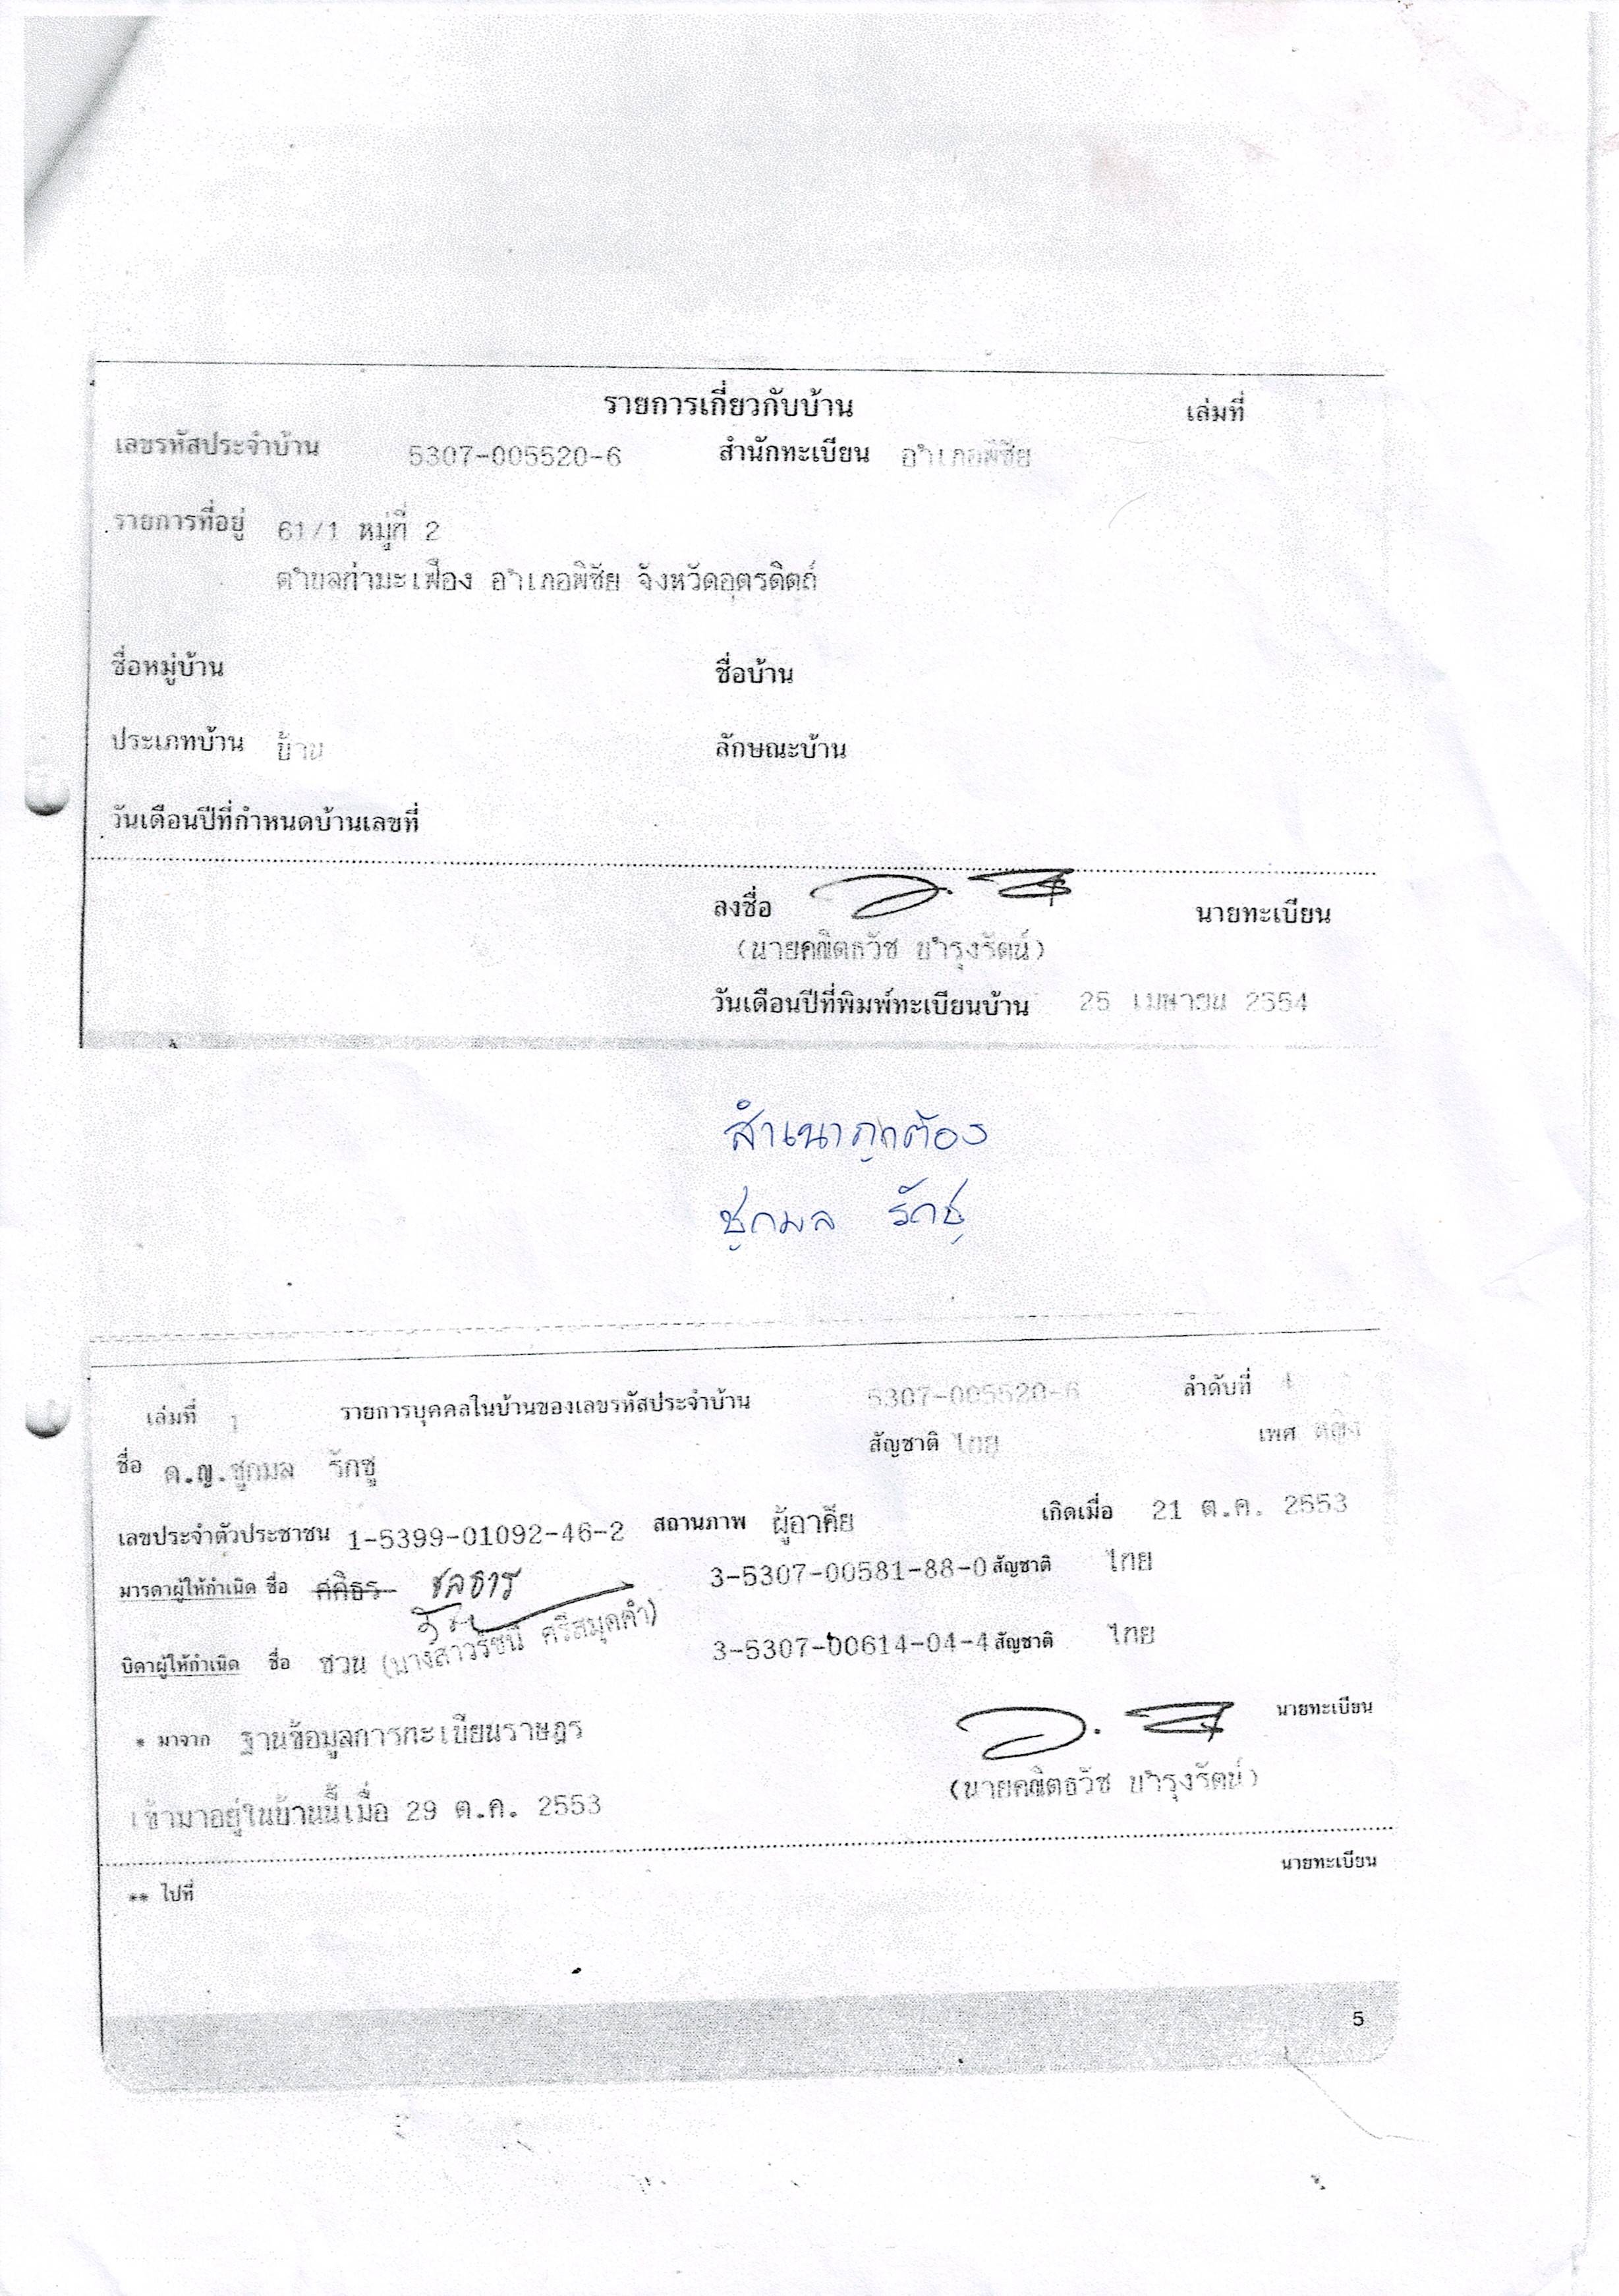 รายการเกี่ยวกับบ้าน เล่มที่ 1
เลขรหัสประจำบ้าน 5307-005520-6 สำนักทะเบียน อำเภอพิชัย
รายการที่อยู่ 61/1 หมู่ที่ 2
ตำบลท่ามะเฟือง อำเภอพิชัย จังหวัดอุตรดิตถ์
ชื่อหมู่บ้าน ชื่อบ้าน
ประเภทบ้าน บ้าน ลักษณะบ้าน
วันเดือนปีที่กำหนดบ้านเลขที่
ลงชื่อ นายทะเบียน
(นายคณิตธวัช บำรุงรัตน์)
วันเดือนปีที่พิมพ์ทะเบียนบ้าน 25 เมษายน 2554
สำเนาถูกต้อง
ชูกมล รักชู
เล่มที่ 1 รายการบุคคลในบ้านของเลขรหัสประจำบ้าน 5307-005520-6 ลำดับที่ 4
ชื่อ ด.ญ.ชูกมล รักชู สัญชาติ ไทย เพศ หญิง
เลขประจำตัวประชาชน 1-5399-01092-46-2 สถานภาพ ผู้อาศัย เกิดเมื่อ 21 ต.ค. 2553
มารดาผู้ให้กำเนิด ชื่อ ศศิธร ชลธาร 3-5307-00581-88-0 สัญชาติ ไทย
บิดาผู้ให้กำเนิด ชื่อ ชวน (นางสาวรัชนี ศรีสมุดคำ) 3-5307-00614-04-4 สัญชาติ ไทย
* มาจาก ฐานข้อมูลการทะเบียนราษฎร นายทะเบียน
(นายคณิตธวัช บำรุงรัตน์)
เข้ามาอยู่ในบ้านนี้เมื่อ 29 ต.ค. 2553
** ไปที่ นายทะเบียน
5